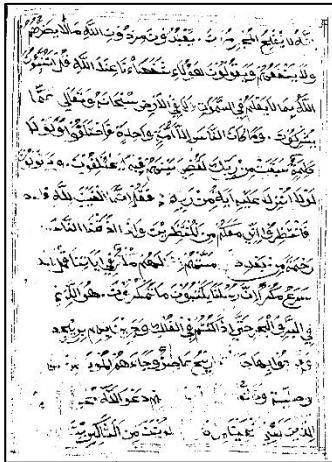 انه لا يفلح المجرمون يعبدون من دون الله ما لا يضرهم
ولا ينفعهم ويقولون هؤلاء شفعاؤنا عند الله قل اتنبئون
الله بما لا يعلم في السموات ولا في الارض سبحانه وتعالى عما
يشركون وما كان الناس الا امة واحدة فاختلفوا ولولا
كلمة سبقت من ربك لقضي بينهم فيما فيه يختلفون ويقولون
لولا انزل عليه اية من ربه فقل انما الغيب لله
فانتظروا اني معكم من المنتظرين واذا اذقنا الناس
رحمة من بعد مستهم لهم مكر في اياتنا قل الله
اسرع مكرا ان رسلنا يكتبون ما تمكرون هو الذي
في البر والبحر حتى اذا كنتم في الفلك وجرين بهم بريح
وفرحوا بها ريح عاصف وجاءهم الموج من
دعوا الله
الدين لئن من الشاكرين